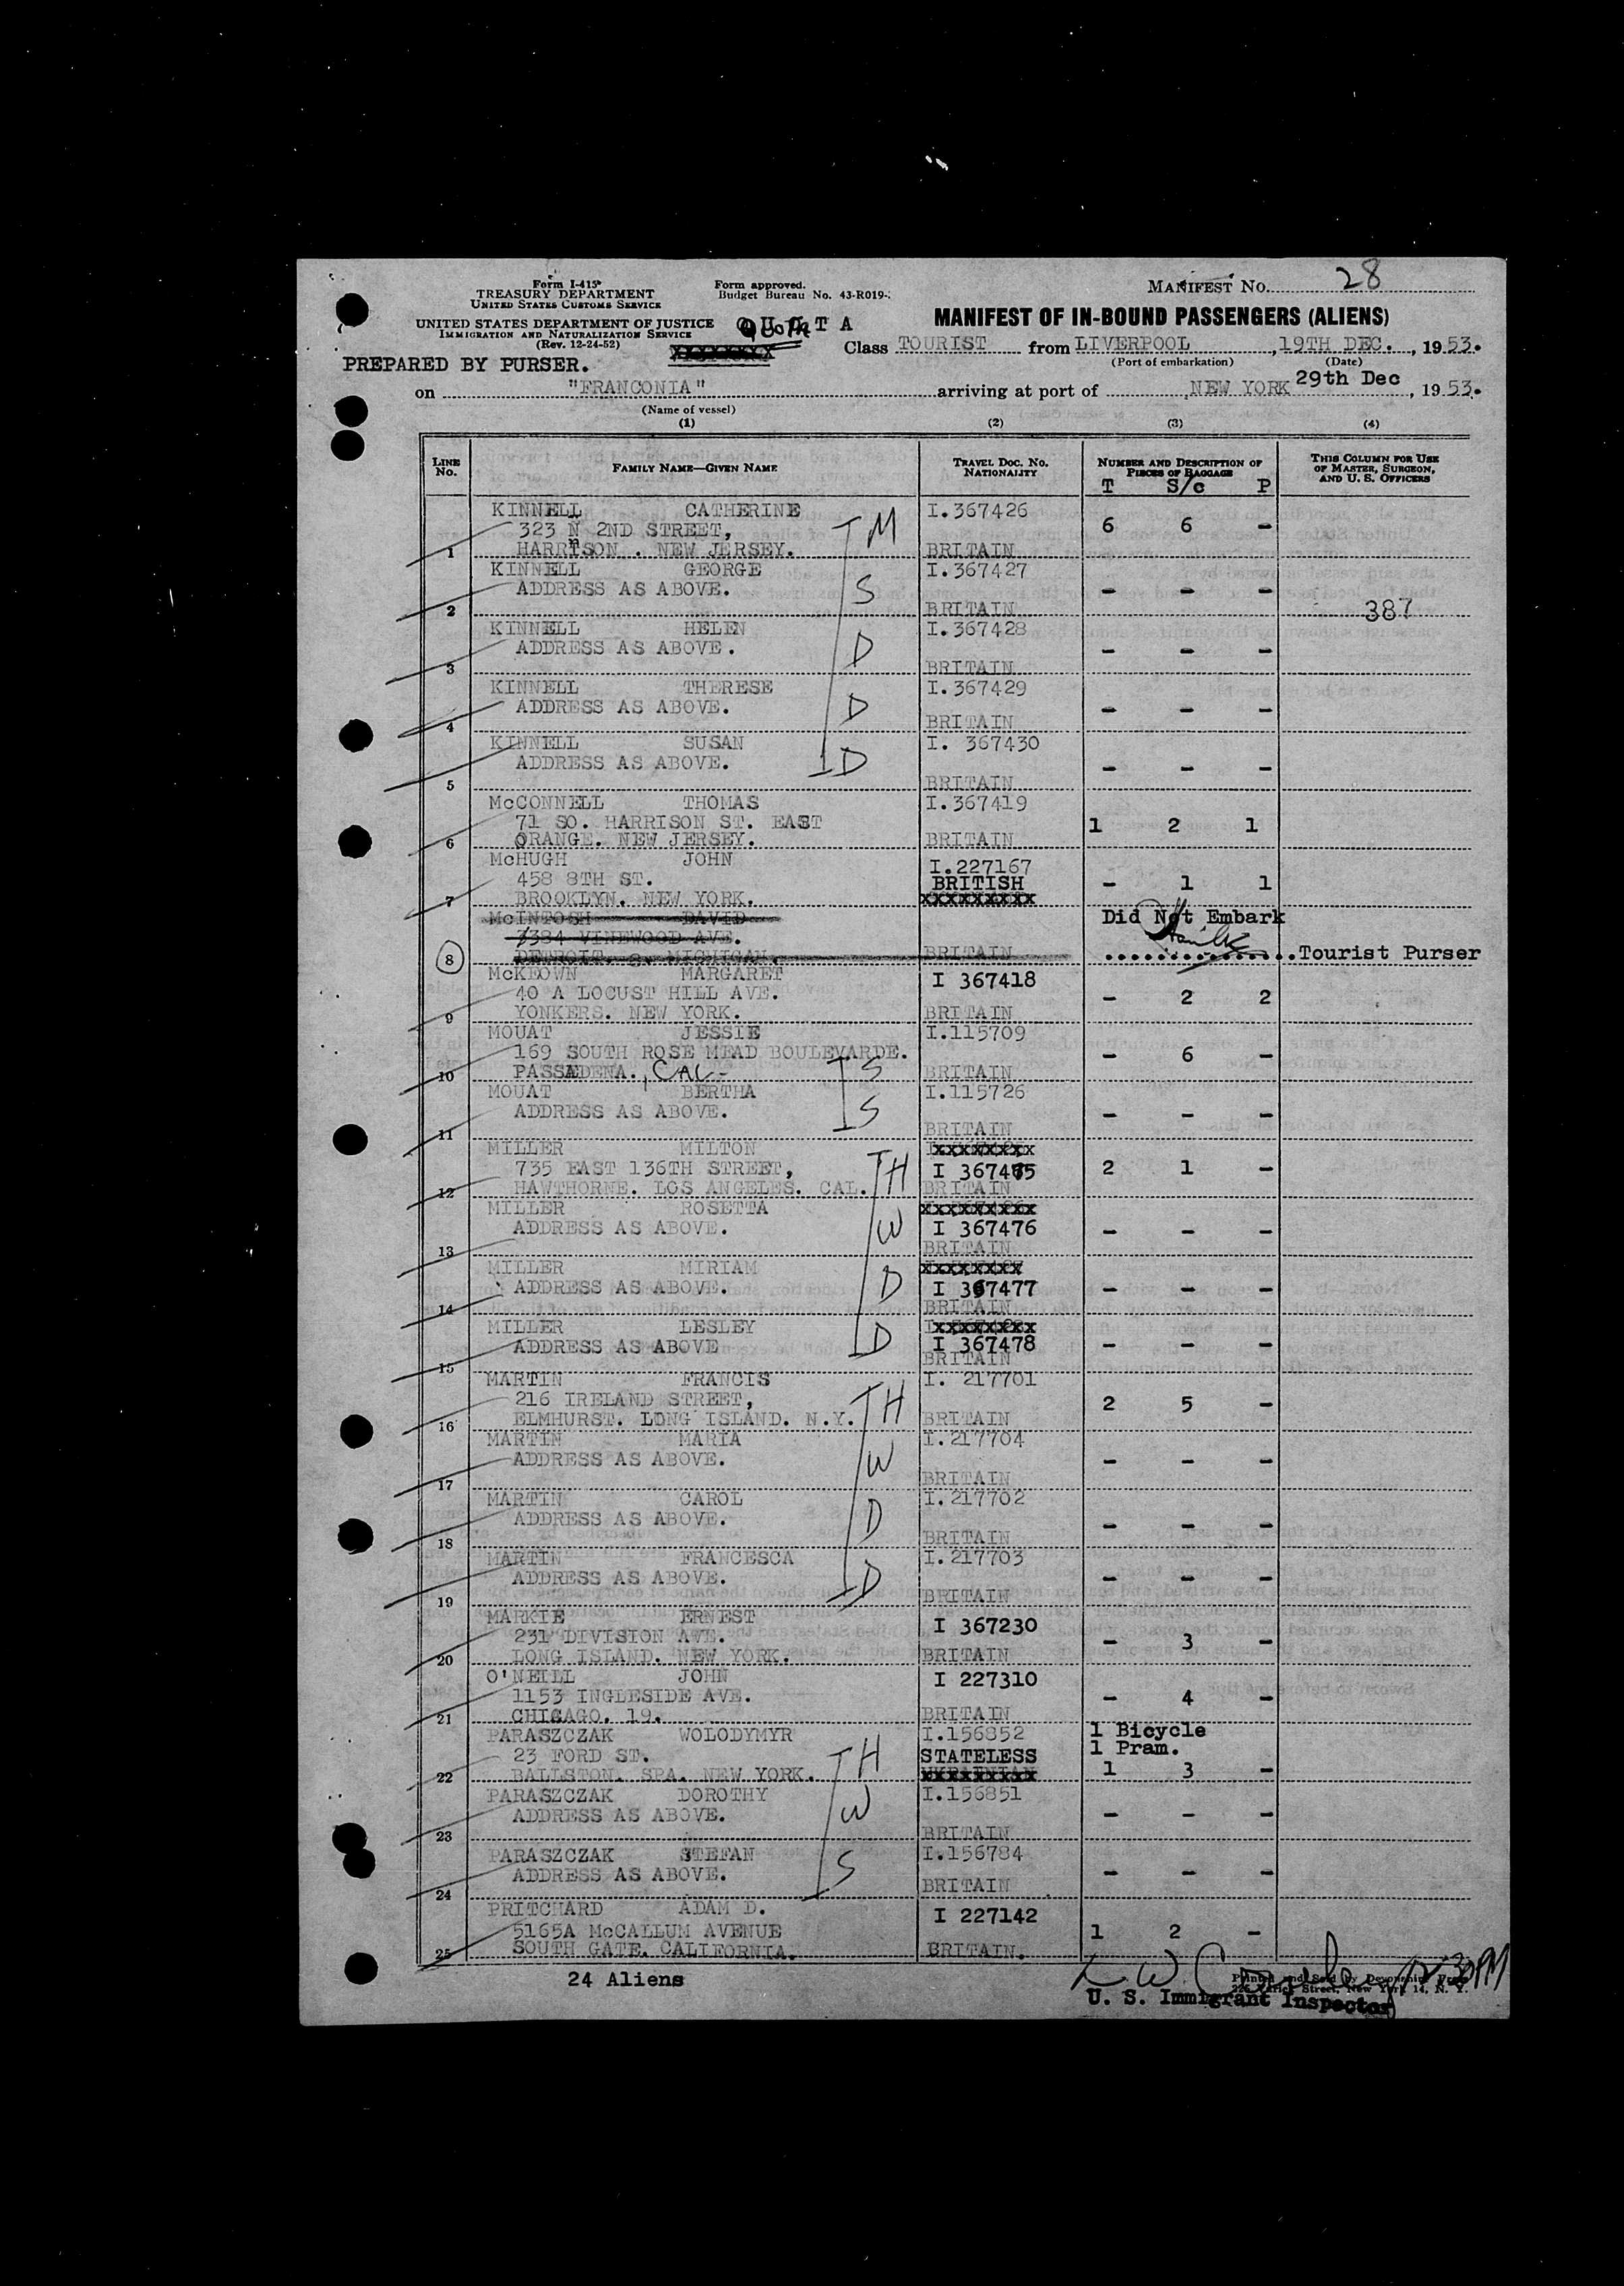 Form I-415
TREASURY DEPARTMENT
UNITED STATES CUSTOMS SERVICE
Form approved.
Budget Bureau No. 43-R019-
MANIFEST No. 28
UNITED STATES DEPARTMENT OF JUSTICE
IMMIGRATION AND NATURALIZATION SERVICE
(Rev. 12-24-52)
QUOTA
MANIFEST OF IN-BOUND PASSENGERS (ALIENS)
PREPARED BY PURSER.
Class TOURIST from LIVERPOOL, 19TH DEC., 1953.
(Port of embarkation) (Date)
on "FRANCONIA" arriving at port of NEW YORK 29th Dec, 1953.
(Name of vessel)
(1) (2) (3) (4)
LINE No. FAMILY NAME—GIVEN NAME TRAVEL DOC. No. NATIONALITY NUMBER AND DESCRIPTION OF PIECES OF BAGGAGE THIS COLUMN FOR USE OF MASTER, SURGEON, AND U. S. OFFICERS
T S/c P
KINNELL CATHERINE I.367426
323 N 2ND STREET, M 6 6 -
1 HARRISON. NEW JERSEY. BRITAIN
KINNELL GEORGE I.367427
ADDRESS AS ABOVE. S - - -
2 BRITAIN 387
KINNELL HELEN I.367428
ADDRESS AS ABOVE. D - - -
3 BRITAIN
KINNELL THERESE I.367429
ADDRESS AS ABOVE. D - - -
4 BRITAIN
KINNELL SUSAN I. 367430
ADDRESS AS ABOVE. D - - -
5 BRITAIN
McCONNELL THOMAS I.367419
71 SO. HARRISON ST. EAST 1 2 1
6 ORANGE. NEW JERSEY. BRITAIN
McHUGH JOHN I.227167
458 8TH ST. BRITISH - 1 1
7 BROOKLYN. NEW YORK. XXXXXXXXX
McINTOSH DAVID Did Not Embark
7384 VINEWOOD AVE.
8 DETROIT. MICHIGAN. BRITAIN Tourist Purser
McKEOWN MARGARET I 367418
40 A LOCUST HILL AVE. - 2 2
9 YONKERS. NEW YORK. BRITAIN
MOUAT JESSIE I.115709
169 SOUTH ROSE MEAD BOULEVARDE. - 6 -
10 PASSADENA., CAL- S BRITAIN
MOUAT BERTHA I.115726
ADDRESS AS ABOVE. S - - -
11 BRITAIN
MILLER MILTON XXXXXXXX
735 EAST 136TH STREET, H I 367475 2 1 -
12 HAWTHORNE. LOS ANGELES. CAL. BRITAIN
MILLER ROSETTA XXXXXXXXX
ADDRESS AS ABOVE. W I 367476 - - -
13 BRITAIN
MILLER MIRIAM XXXXXXXX
ADDRESS AS ABOVE. D I 367477 - - -
14 BRITAIN
MILLER LESLEY XXXXXXXX
ADDRESS AS ABOVE D I 367478 - - -
15 BRITAIN
MARTIN FRANCIS I. 217701
216 IRELAND STREET, H 2 5 -
16 ELMHURST. LONG ISLAND. N.Y. BRITAIN
MARTIN MARIA I.217704
ADDRESS AS ABOVE. W - - -
17 BRITAIN
MARTIN CAROL I.217702
ADDRESS AS ABOVE. D - - -
18 BRITAIN
MARTIN FRANCESCA I.217703
ADDRESS AS ABOVE. D - - -
19 BRITAIN
MARKIE ERNEST I 367230
231 DIVISION AVE. - 3 -
20 LONG ISLAND. NEW YORK. BRITAIN
O'NEILL JOHN I 227310
1153 INGLESIDE AVE. - 4 -
21 CHICAGO. 19. BRITAIN
PARASZCZAK WOLODYMYR I.156852 1 Bicycle
23 FORD ST. H STATELESS 1 Pram.
22 BALLSTON. SPA. NEW YORK. XXXXXXXXX 1 3 -
PARASZCZAK DOROTHY I.156851
ADDRESS AS ABOVE. W - - -
23 BRITAIN
PARASZCZAK STEFAN I.156784
ADDRESS AS ABOVE. S - - -
24 BRITAIN
PRITCHARD ADAM D. I 227142
5165A McCALLUM AVENUE 1 2 -
25 SOUTH GATE. CALIFORNIA. BRITAIN.
24 Aliens
U. S. Immigrant Inspector